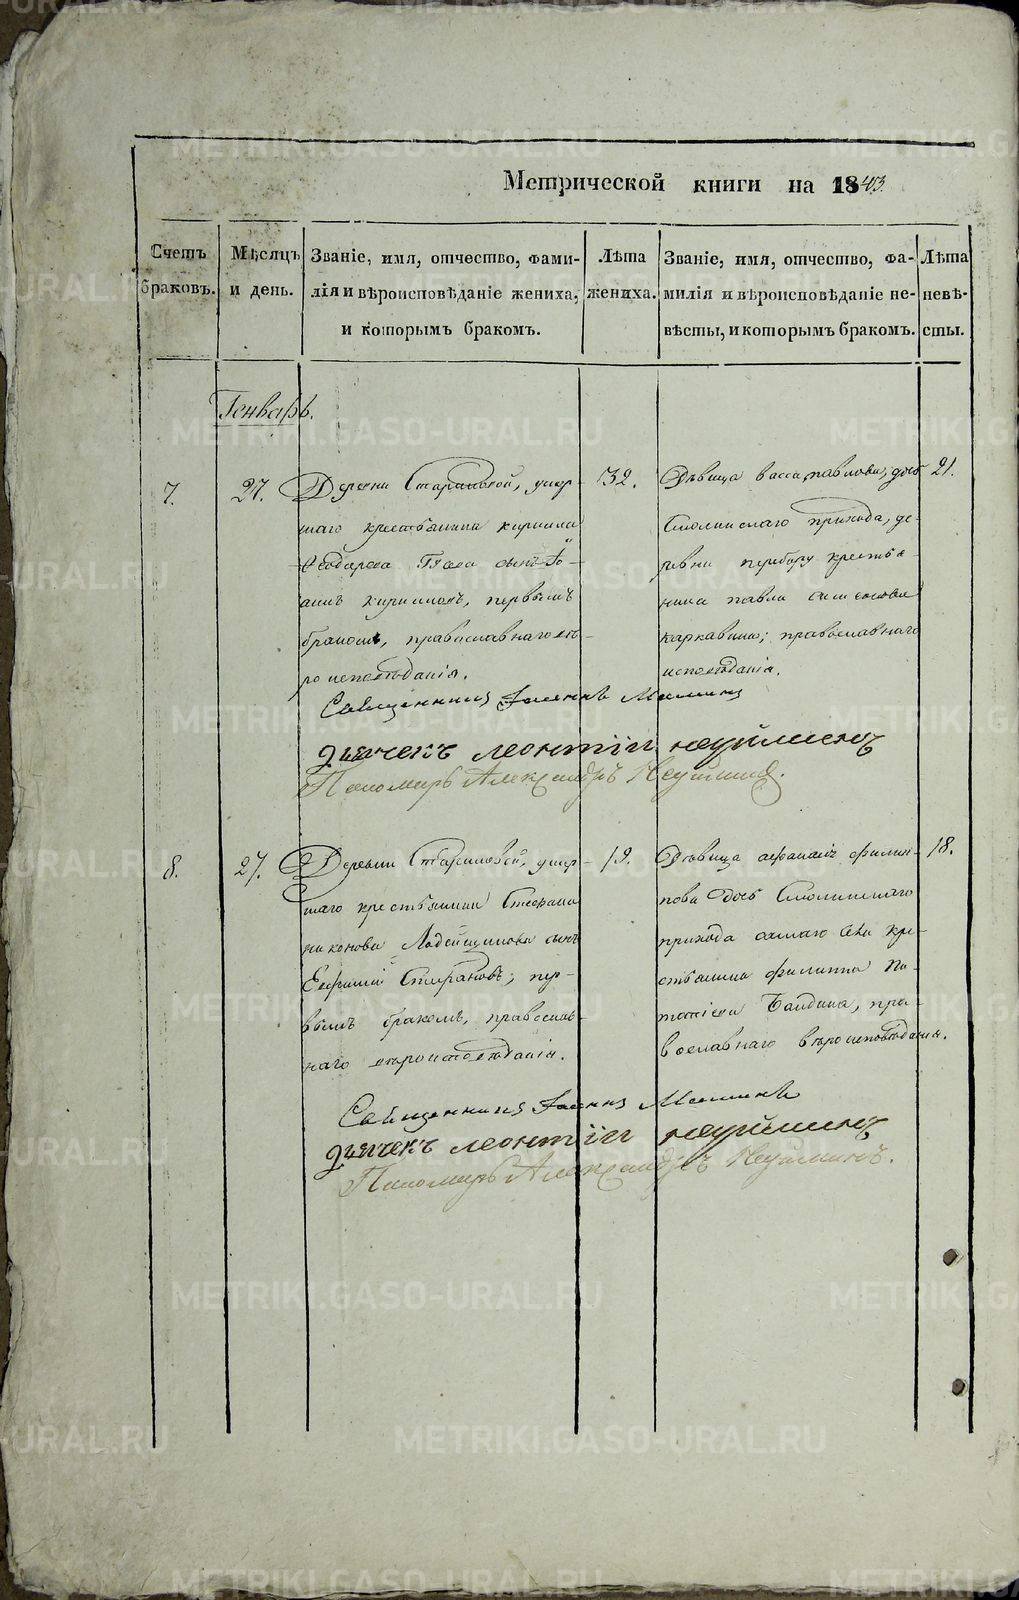 Метрической книги на 1843.
Счетъ браковъ.
Мѣсяцъ и день.
Званіе, имя, отчество, фами-
лія и вѣроисповѣданіе жениха,
и которымъ бракомъ.
Лѣта
жениха.
Званіе, имя, отчество, фа-
милія и вѣроисповѣданіе не-
вѣсты, и которымъ бракомъ.
Лѣта
невѣ-
сты.
Генварь.
7.
27.
Деревни умер-
шаго крестьянина кирилла
сынъ Iо-
аннъ кириловъ, первымъ
бракомъ, православнаго вѣ-
роисповѣданія.
32.
Дѣвица васса павлова, дочь
Смолинскаго прихода, де-
ревни перебору крестья-
нина павла симеонова
каркавина; православнаго
исповѣданія.
21.
Священникъ Іоаннъ Маминъ
дьячекъ леонтій неуйминъ
Пономарь Александръ Неуйминъ.
8.
27.
Деревни умер-
шаго крестьянина Стефана
никонова Ладейщикова сынъ
Ефимій Стефановъ; пер-
вымъ бракомъ, православ-
наго вѣроисповѣданія.
19.
Дѣвица филип-
пова дочь Смолинскаго
прихода самаго села кре-
стьянина филиппа По-
тапіева Балдина, пра-
вославнаго вѣроисповѣданія.
18.
Священникъ Іоаннъ Маминъ
дьячекъ леонтій неуйминъ
Пономарь Александръ Неуйминъ.
METRIKI.GASO-URAL.RU